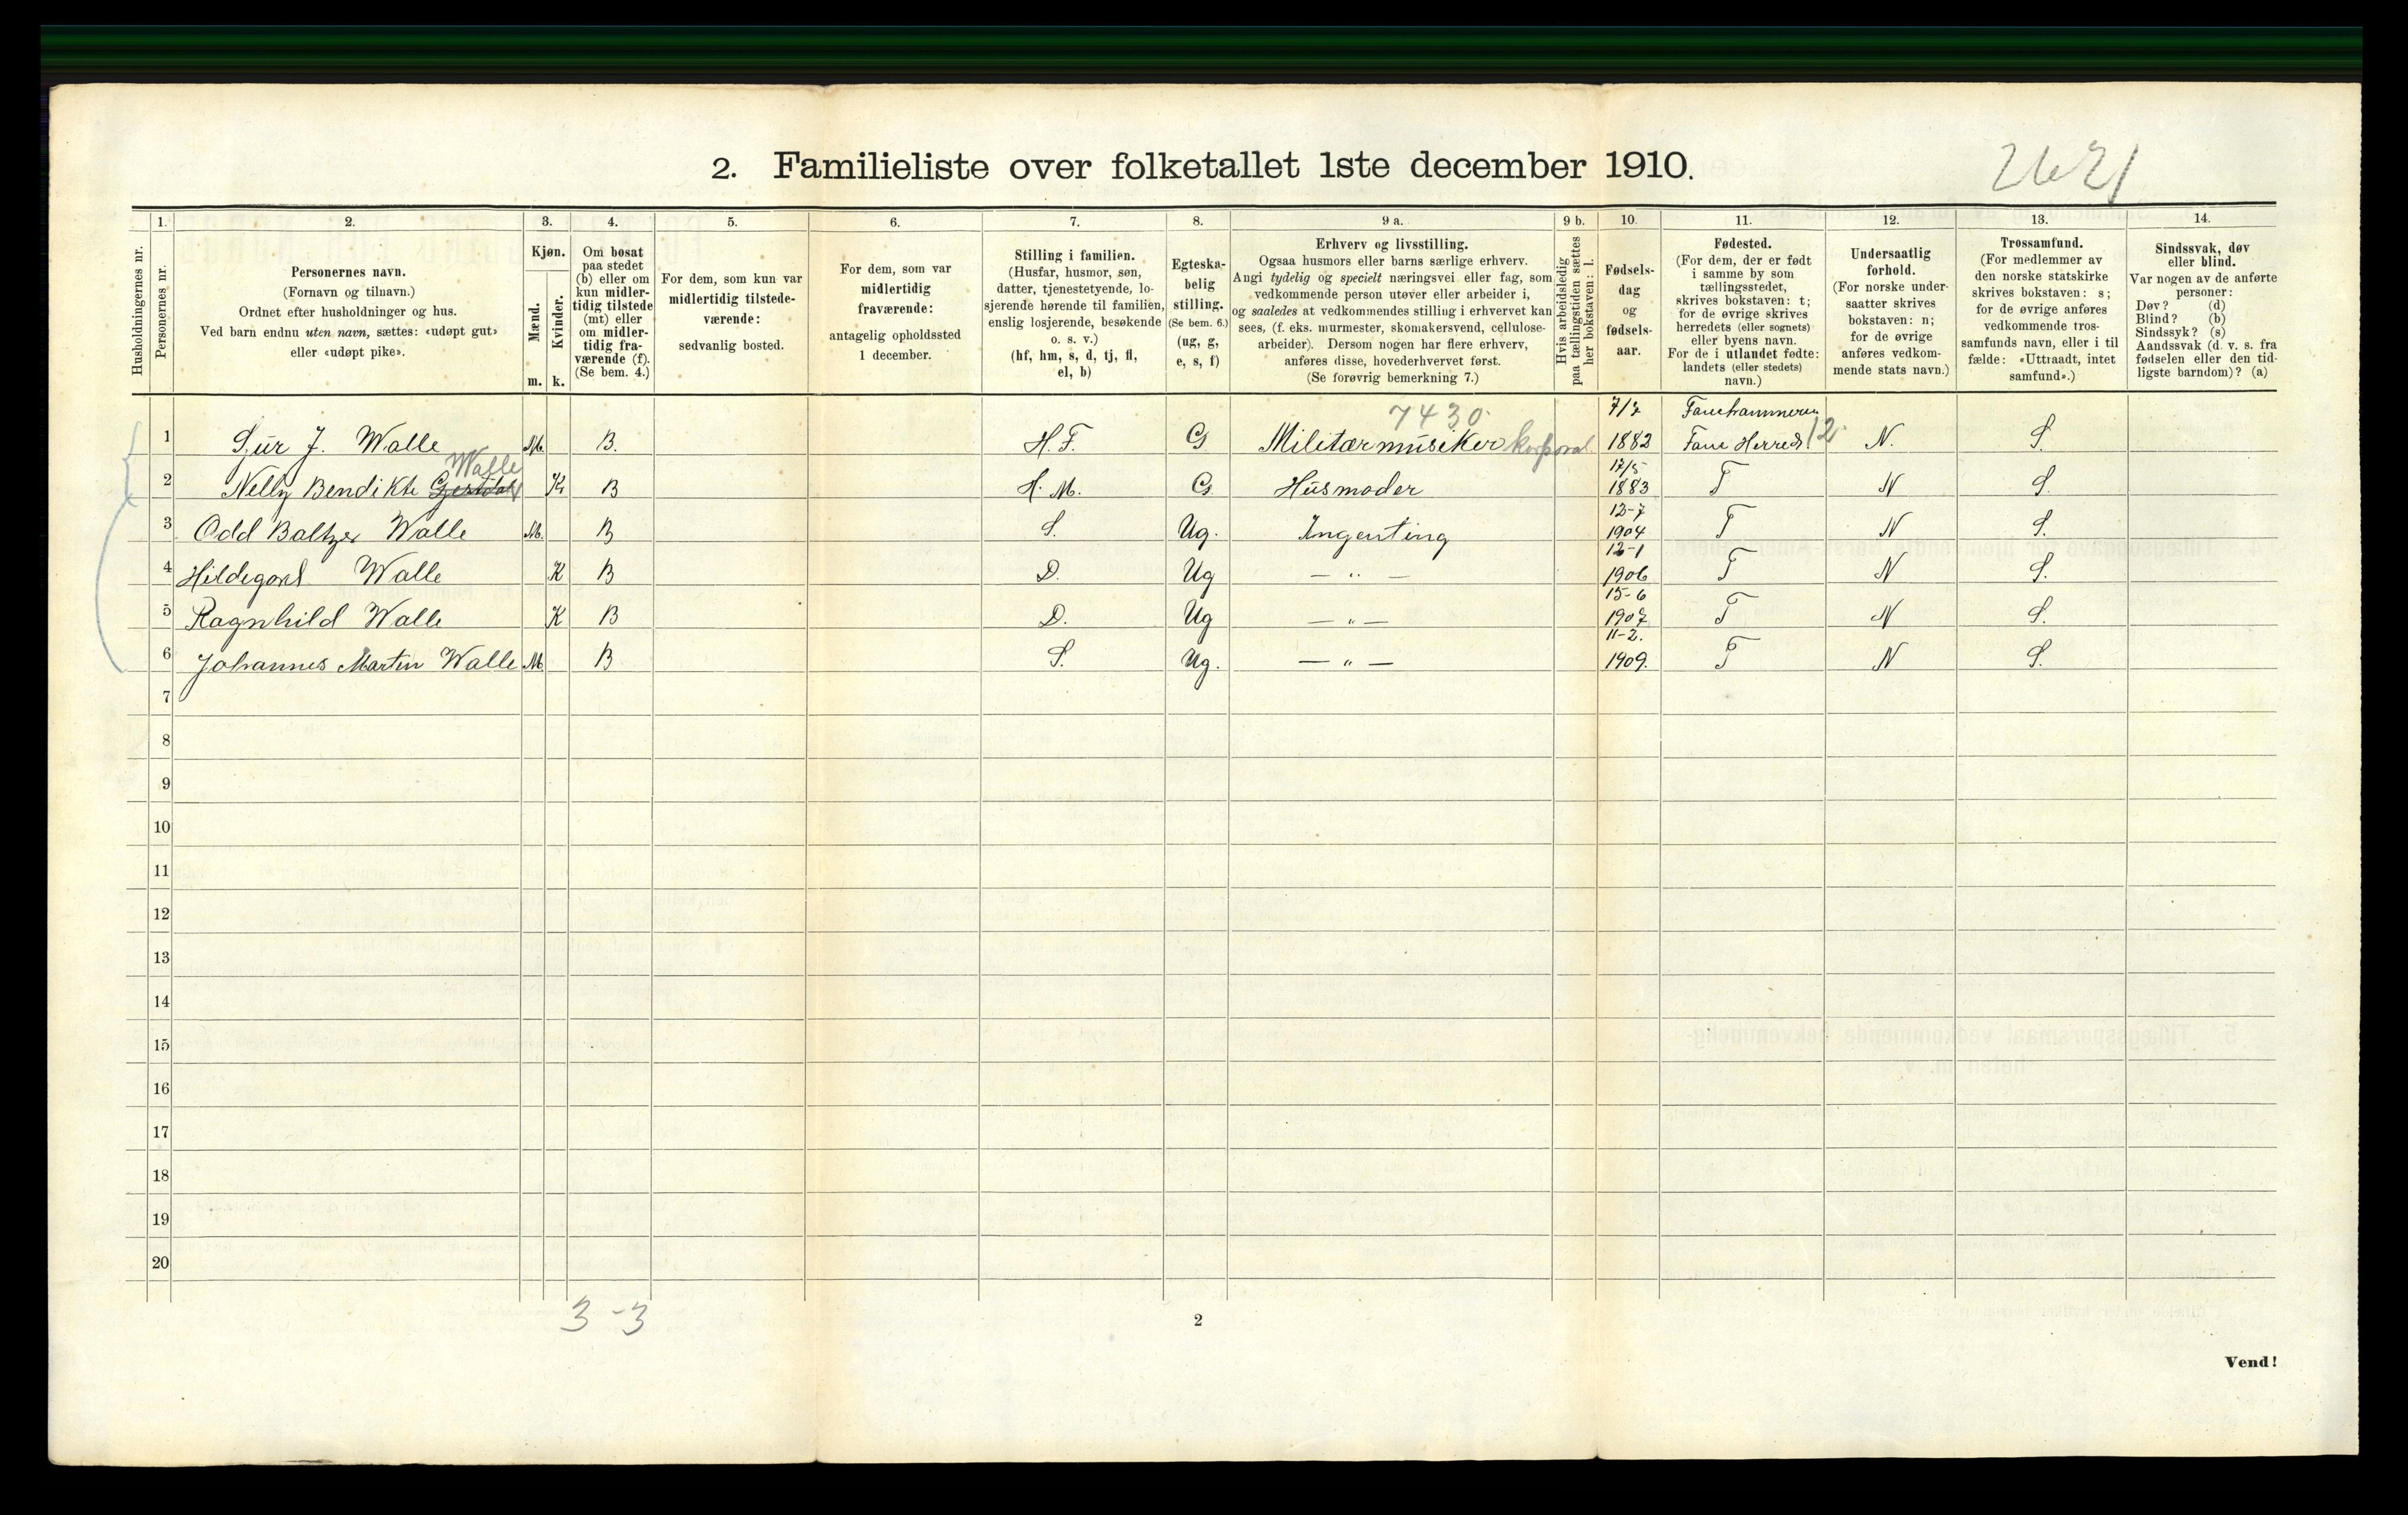 2. Familieliste over folketallet 1ste december 1910.
2621
Husholdningernes nr.
1.
Personernes nr.
2.
Personernes navn.
(Fornavn og tilnavn.)
Ordnet efter husholdninger og hus.
Ved barn endnu uten navn, sættes: «udøpt gut»
eller «udøpt pike».
3.
Kjøn.
Mænd.
Kvinder.
m. k.
4.
Om bosat
paa stedet
(b) eller om
kun midler-
tidig tilstede
(mt) eller
om midler-
tidig fra-
værende (f).
(Se bem. 4.)
5.
For dem, som kun var
midlertidig tilstede-
værende:
sedvanlig bosted.
6.
For dem, som var
midlertidig
fraværende:
antagelig opholdssted
1 december.
7.
Stilling i familien.
(Husfar, husmor, søn,
datter, tjenestetyende, lo-
sjerende hørende til familien,
enslig losjerende, besøkende
o. s. v.)
(hf, hm, s, d, tj, fl,
el, b)
8.
Egteska-
belig
stilling.
(Se bem. 6.)
(ug, g,
e, s, f)
9 a.
Erhverv og livsstilling.
Ogsaa husmors eller barns særlige erhverv.
Angi tydelig og specielt næringsvei eller fag, som
vedkommende person utøver eller arbeider i,
og saaledes at vedkommendes stilling i erhvervet kan
sees, (f. eks. murmester, skomakersvend, cellulose-
arbeider). Dersom nogen har flere erhverv,
anføres disse, hovederhvervet først.
(Se forøvrig bemerkning 7.)
9 b.
Hvis arbeidsledig
paa tællingstiden sættes
her bokstaven: l.
10.
Fødsels-
dag
og
fødsels-
aar.
11.
Fødested.
(For dem, der er født
i samme by som
tællingsstedet,
skrives bokstaven: t;
for de øvrige skrives
herredets (eller sognets)
eller byens navn.
For de i utlandet fødte:
landets (eller stedets)
navn.)
12.
Undersaatlig
forhold.
(For norske under-
saatter skrives
bokstaven: n;
for de øvrige
anføres vedkom-
mende stats navn.)
13.
Trossamfund.
(For medlemmer av
den norske statskirke
skrives bokstaven: s;
for de øvrige anføres
vedkommende tros-
samfunds navn, eller i til
fælde: «Uttraadt, intet
samfund».)
14.
Sindssvak, døv
eller blind.
Var nogen av de anførte
personer:
Døv? (d)
Blind? (b)
Sindssyk? (s)
Aandssvak (d. v. s. fra
fødselen eller den tid-
ligste barndom)? (a)
7430
1 J. Walle M. B. H. F. G Militærmusiker korporal 1882 Fane Herred 12 N. S.
Walle
2 Nelly Bendikte K B H. M. G Husmoder 17/5 1883 T N S.
3 Odd Baltzer Walle M. B S. Ug. Ingenting 12-7 1904 T N S.
4 Hildegard Walle K B D. Ug — " — 12-1 1906 T N S.
5 Ragnhild Walle K B D. Ug — " — 15-6 1907 T N S.
6 Johannes Martin Walle M. B S. Ug. — " — 11-2. 1909. T N S.
7
8
9
10
11
12
13
14
15
16
17
18
19
20
3-3
2
Vend!